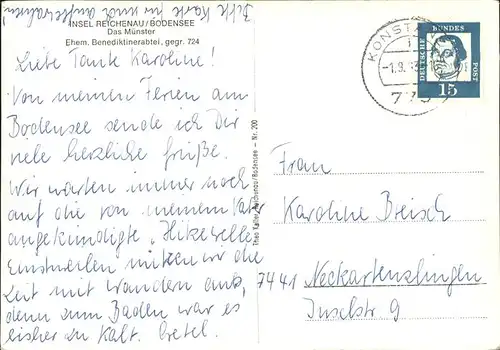 Bitte Karte für mich aufbewahren!
INSEL REICHENAU/BODENSEE
Das Münster
Ehem. Benediktinerabtei, gegr. 724
Liebe Tante Karoline!
Von meinen Ferien am
Bodensee sende ich Dir
viele herzliche Grüße.
Wir warten immer noch
auf die von meinem Vater
angekündigte „Hitzewelle
Einstweilen nützen wir die
Zeit mit wandern aus,
denn zum Baden war es
bisher zu kalt. Gretel.
Theo Keller, Reichenau/Bodensee – Nr. 200
KONSTANZ
-1.9.63
775
DEUTSCHE BUNDESPOST
15
Frau
Karoline Breisch
7441 Neckartenzlingen
Inselstr 9